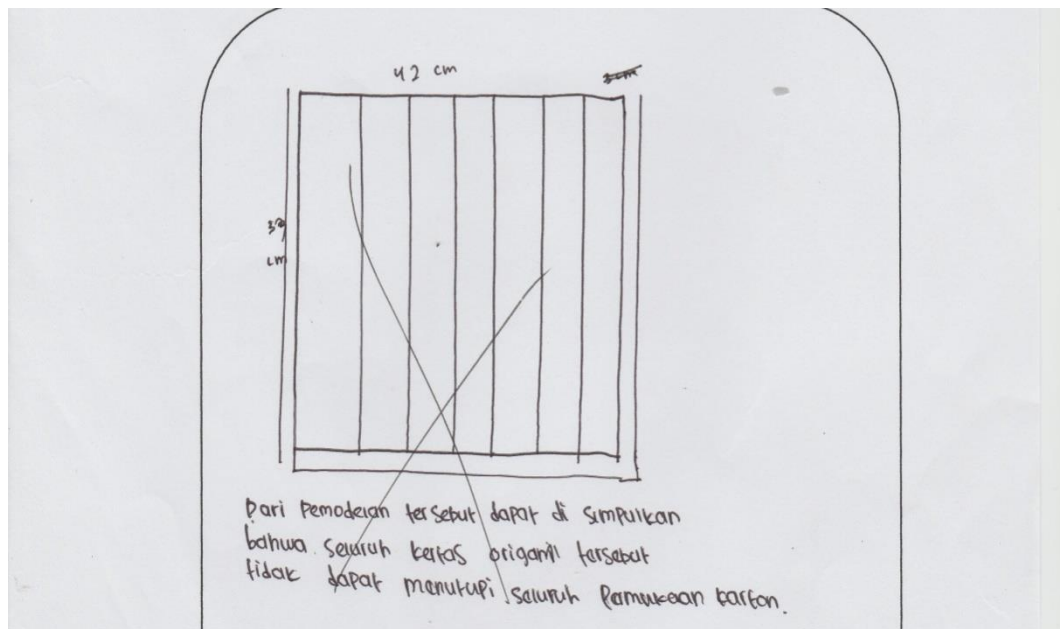 42 cm
3 cm
cm
Dari Pemodelan tersebut dapat di simpulkan
bahwa seluruh kertas origamil tersebut
tidak dapat menutupi seluruh Permukaan karton.